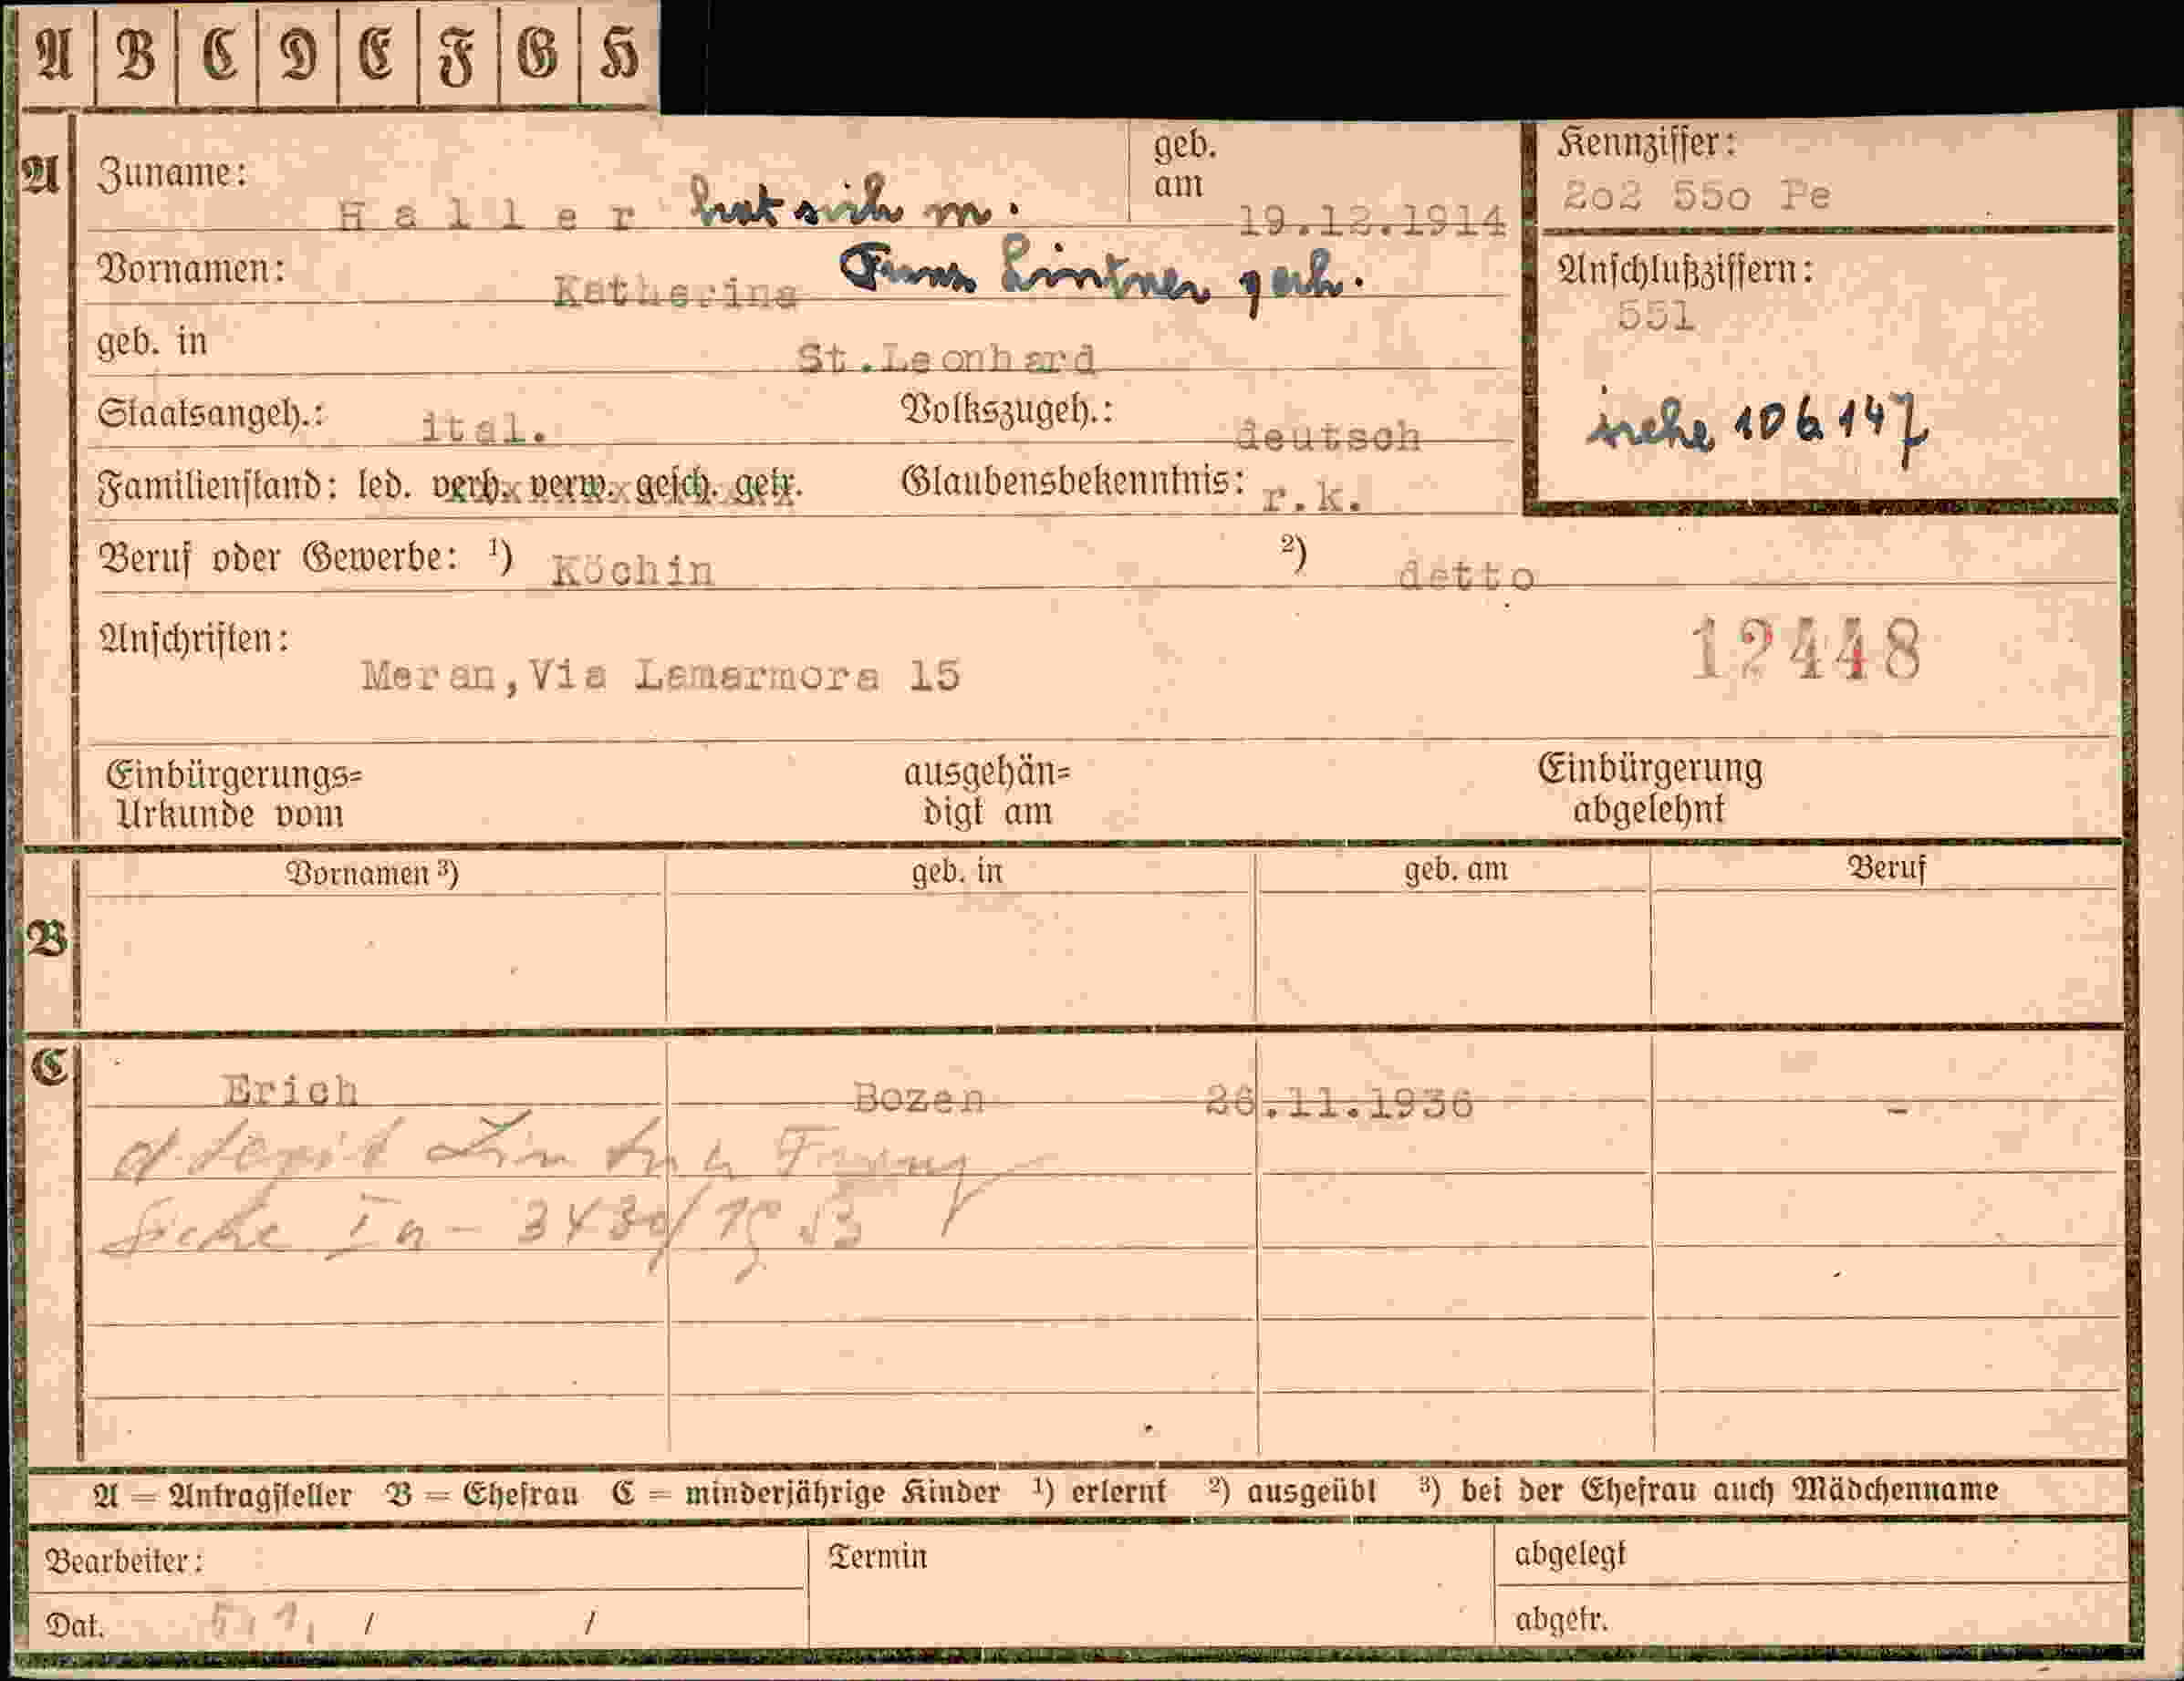 A B C D E F G H
A Zuname: Haller hat sich m. geb. am 19.12.1914 Kennziffer: 2o2 55o Pe
Vornamen: Katharina Franz Lintner verh. Anschlußziffern: 551
geb. in St.Leonhard
Staatsangeh.: ital. Volkszugeh.: deutsch siehe 106147
Familienstand: led. verh. verw. gesch. getr. Glaubensbekenntnis: r.k.
Beruf oder Gewerbe: ¹) Köchin ²) detto
Anschriften: 12448
Meran,Via Lamarmora 15
Einbürgerungs= ausgehän= Einbürgerung
Urkunde vom digt am abgelehnt
Vornamen ³) geb. in geb. am Beruf
B
C
Erich Bozen 26.11.1936 -
Lintner Franz
siehe
A = Antragsteller B = Ehefrau C = minderjährige Kinder ¹) erlernt ²) ausgeübt ³) bei der Ehefrau auch Mädchenname
Bearbeiter: Termin abgelegt
Dat. / / abgetr.